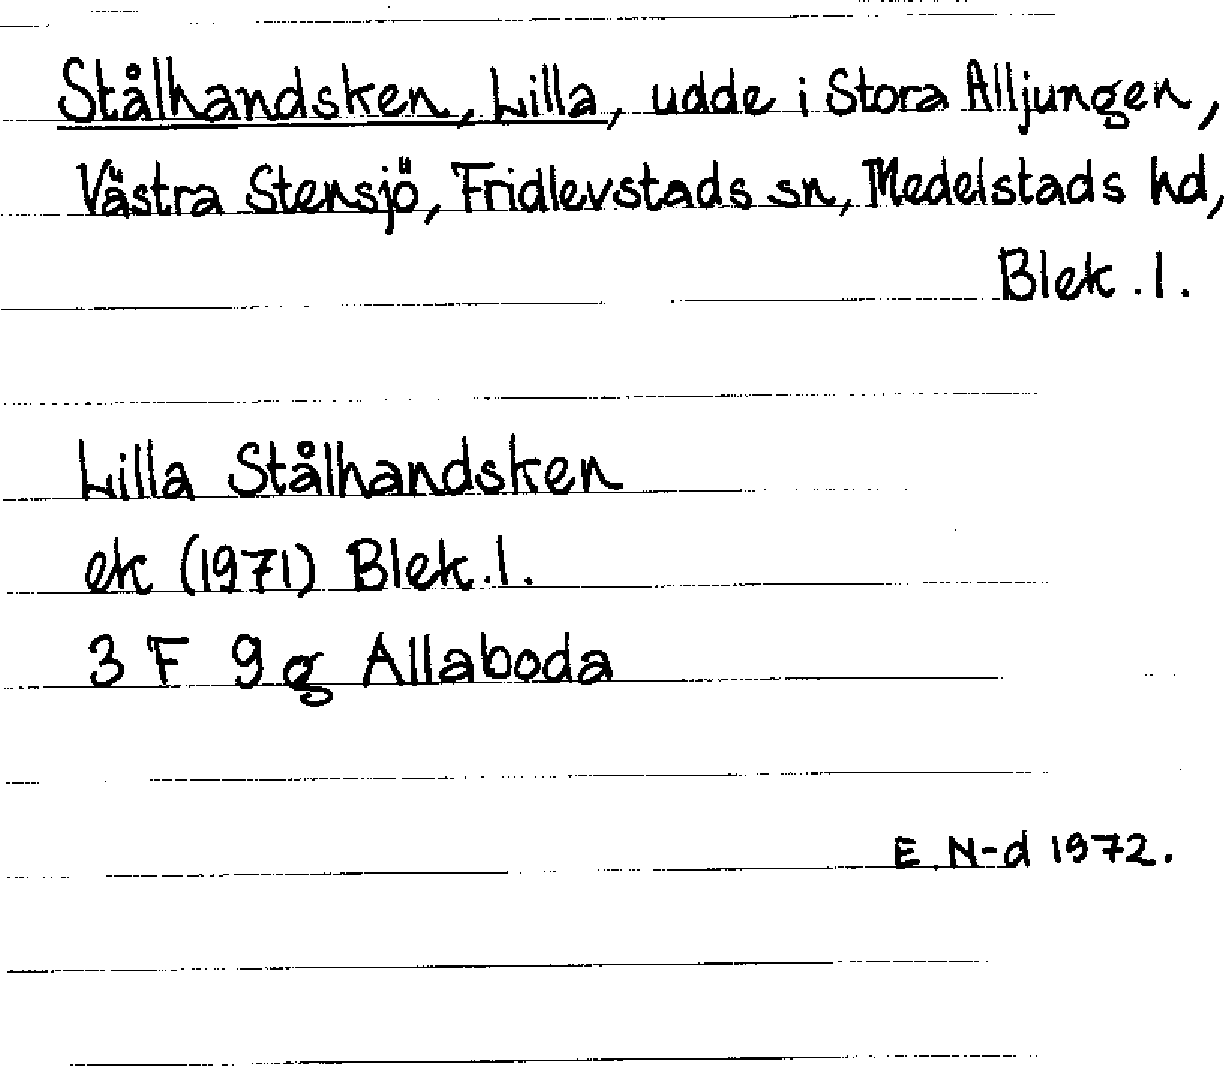 Stålhandsken, Lilla, udde i Stora Alljungen,
Västra Stensjö, Fridlevstads sn, Medelstads hd,
Blek. l.
Lilla Stålhandsken
ek (1971) Blek. l.
3 F 9 g Allaboda
E. N-d 1972.